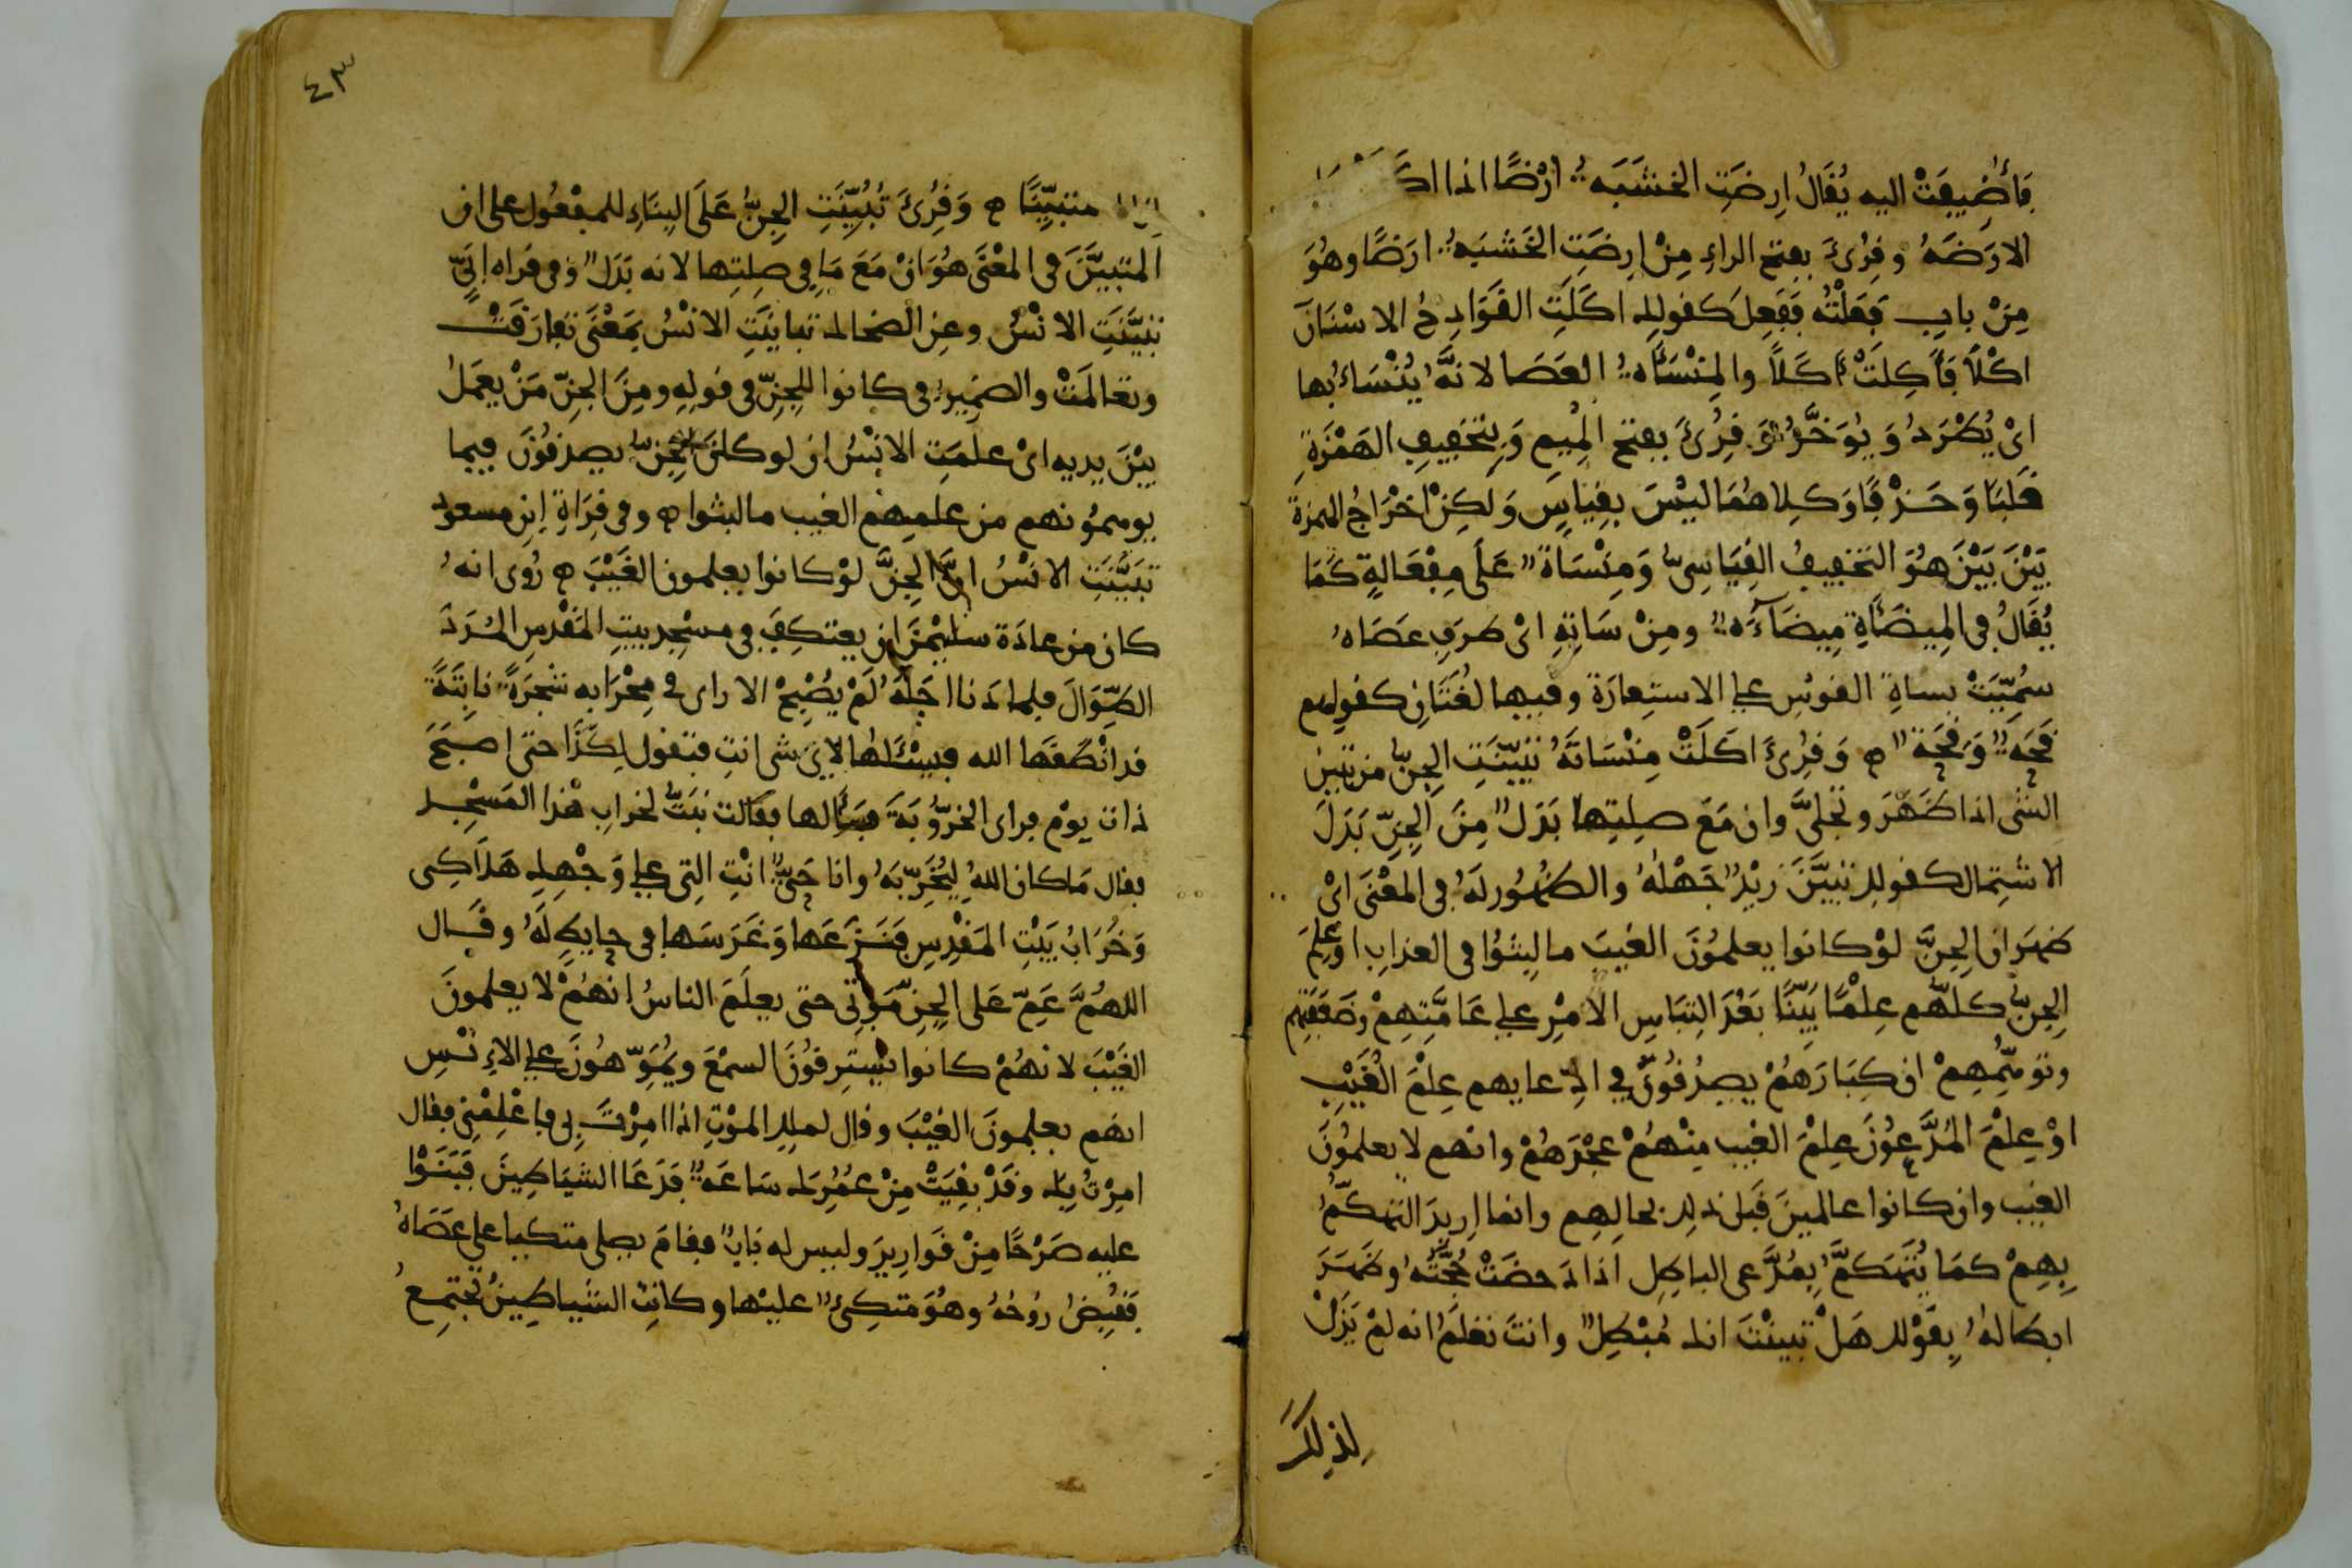 فَأُضِيفَتْ اليه يُقَالُ اِرِضَتِ الخشَبَةُ أرْضًا اذا
الارَضَةُ وقُرِئَ بفتح الراءِ مِنْ اِرِضَتِ الخَشبَةُ ارَضًا وهُوَ
مِنْ بابِ فَعَلْتُه فَفَعِلَ كقولك اكَلَتِ القَوَادِحُ الاسْنَانَ
اكْلًا فَأَكِلَتْ أكَلًا والمِنْسَأةُ العَصَا لانَّهُ يُنْسَأُ بها
اىْ يُطْرَدُ وَيُوَخَّرُ وَقُرِئَ بفتح المِيمِ وَبِتخفِيفِ الهَمْزَةِ
قَلبًا وَحَذْفًا وَكِلاهُمَا ليْسَ بِقِيَاسٍ وَلَكِنْ اخْرَاجُ الهمزةِ
بَيْنَ بَيْنَ هُوَ التخفِيفُ القِيَاسِىُّ وَمِنْسَاةٌ عَلَى مِفْعَالةٍ كَمَا
يُقَالُ فِى المِيضَأَةِ مِيضَآءَةٌ ومِنْ سَاتِهِ اىْ طرَفِ عَصَاهُ
سُمِّيَتْ بساةِ القوسِ على الاستِعارَة وفيها لُغَتَانِ كقولهم
قَحَةٌ وَقِحَةٌ ۝ وَقُرِئَ اكَلَتْ مِنْسَاتَهُ تَبَيَّنَتِ الجِنُّ من تبين
الشى اذا ظَهَرَ وتجلىَّ وان مَعَ صِلتِها بَدَلٌ مِنَ الجِنِّ بَدَلَ
الاشتِمال كقولك تبيَّنَ زيْدٌ جَهْلُهُ والظهُور لَهُ فى المعْنَى اىْ
ظهَر ان الجِنَّ لوْ كانوا يعلمُونَ الغيبَ ما لبِثُوا فى العذابِ او عَلِمَ
الجِنُّ كلّهم عِلْمًا بَيِّنًا بَعْدَ التِبَاسِ الامْرِ على عَامَّتِهِمْ وضَعَفَتِهم
وتوهُّمِهِمْ ان كِبَارَهُمْ يصدُقُونَ فِى ادِّعايهم عِلْمَ الْغَيْبِ
اوْ عِلمَ المُدَّعُونَ عِلْمَ الغيب مِنْهُمْ عَجْزَهُمْ وانهم لا يعلمُونَ
الغيب وان كانوا عالمينَ قَبل ذلك بحالِهِم وانما اريدَ التهكُّمُ
بِهِمْ كمَا يُتهَكَّمُ بِمُدَّعى الباطِل اذا دَحضَتْ حُجَّتُهُ وظَهَرَ
ابطالهُ بِقَوْلك هَلْ تبينْتَ انك مُبْطِلٌ وانتَ تعْلمُ انه لمْ يَزَلْ
لذلك
٤٣
متبيِّنًا ۝ وَقُرِئَ تُبُيِّنَتِ الجِنُّ عَلَى البِنَاءِ للمفعُول على ان
المتبيَّنَ فى المعْنَى هُوَ انْ مَعَ مَا فِى صِلتِها لانه بَدَلٌ وفى قراة ابَىٍّ
تبيَّنَتِ الانْسُ وعنِ الضحاك تبايَنَتِ الانْسُ بِمَعْنَى تعارَفَتْ
وتعالَمَتْ والضمِيرُ فى كانوا للجِنِّ فى قولِهِ ومِنَ الجِنِّ مَنْ يعمَلُ
بيْنَ يديه اىْ علمَتِ الانسُ ان لو كانَ الجِنُّ يصدقُونَ فيما
يوهمُونهم من علمِهِم الغيب ما لبثوا ۝ وفى قِرَاةِ ابْنِ مسعود
تبيَّنَتِ الانسُ انَّ الجِنَّ لوْ كانوا يعلمون الغَيْبَ ۝ رُوى انهُ
كان من عادَة سليْمنَ ان يعتكِفَ فى مسْجِد بيتِ المَقْدِسِ المُدَدَ
الطِّوَالَ فلما دَنا اجَلُهُ لَمْ يُصْبِحْ الا راى فى مِحْرَابه شجَرَةً نابِتَةً
قد انْطَقَها الله فيَسْئَلها لاىِّ شى انتِ فتقول لِكَذَا حتى اصبَحَ
ذات يوْم فراى الخرُّوبَةَ فسَألها فقالت نبَتُّ لخرابِ هْذا المَسْجِد
فقال مَا كان اللهُ ليُخَرِّبَهُ وانا حَىٌّ انْتِ التِى على وَجْهِكِ هَلاكِى
وَخَرَابُ بَيْتِ المَقْدِسِ فَنَزَعَها وَغَرَسَها فى حايِطٍ لَهُ وقَال
اللهُمَّ عَمِّ عَلى الجِنِّ مَوْتِى حتى يعلَمَ الناسُ انهُمْ لا يعلمونَ
الغَيْبَ لانهُمْ كانوا يستَرِقُونَ السمْعَ ويُمَوِّهُونَ على الاِنْسِ
انهم يعلمونَ الغيْبَ وقال لملك المَوْتِ اذا امِرْتَ بِى فاعْلِمْنِى فقال
امِرْتُ بِكَ وقَدْ بقِيَتْ مِنْ عُمُرِكَ سَاعَةٌ فَدَعَا الشيَاطِينَ فَبَنَوْا
عليه صَرْحًا مِنْ قَوارِيرَ وليس له بَابٌ فقامَ يصلى متكيا على عَصَاهُ
فَقُبِضَ رُوحُهُ وهُوَ متكِئٌ عليْها وكانتِ الشياطِينُ تجتمِعُ